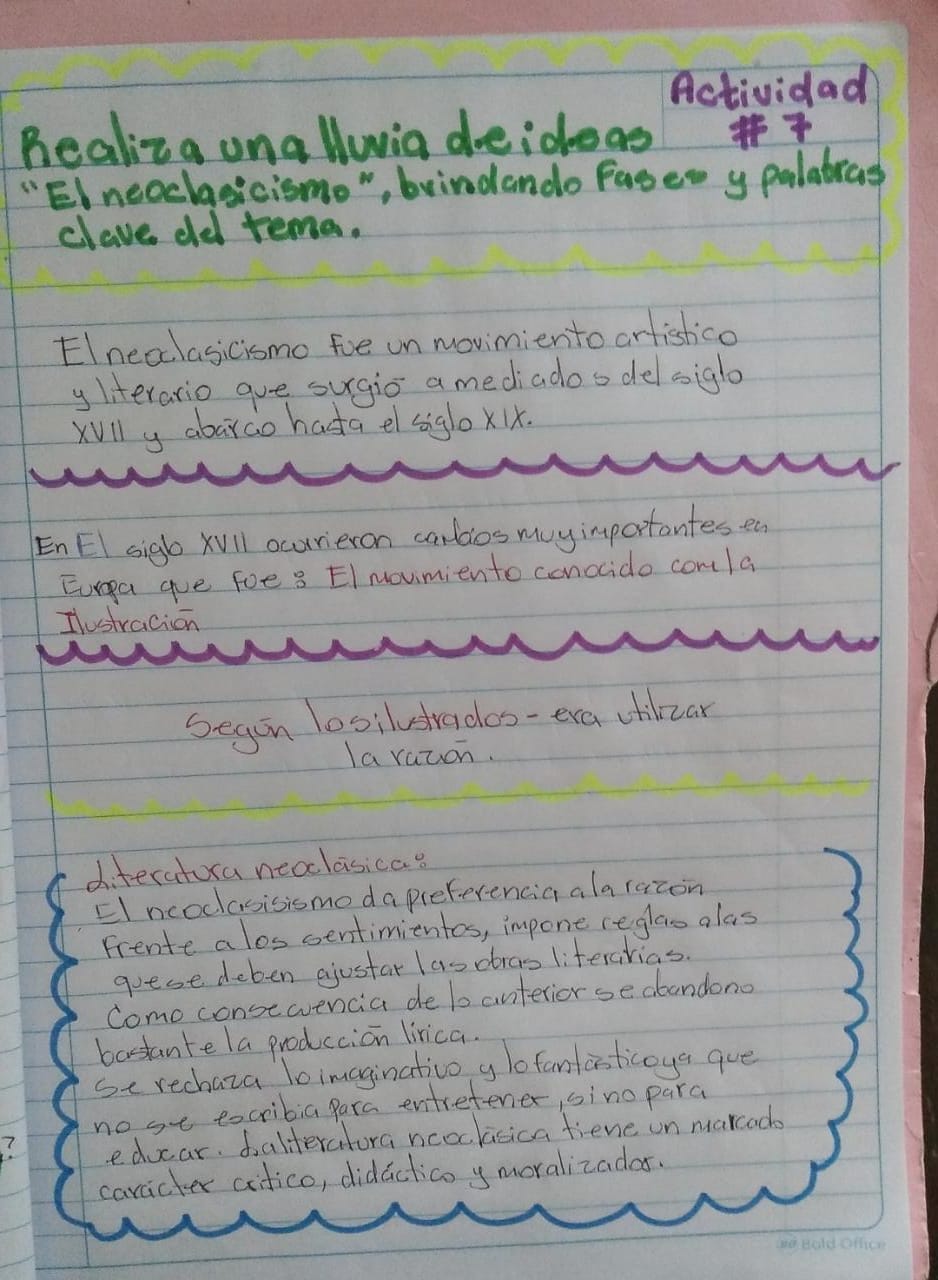 Actividad
# 7
Realiza una lluvia de ideas
"El neoclasicismo", brindando Fases y palabras
clave del tema.
El neoclasicismo fue un movimiento artistico
y literario que surgió a mediados del siglo
XVII y abarco hasta el siglo XIX.
En El siglo XVII ocurrieron cambios muy importantes en
Europa que fue : El movimiento conocido com la
Ilustración
Según los ilustrados - era utilizar
la razón.
Literatura neoclásica:
El neoclasisismo da preferencia a la razón
Frente a los sentimientos, impone reglas a las
que se deben ajustar las obras literarias.
Como consecuencia de lo anterior se abandono
bastante la producción lírica.
Se rechaza lo imaginativo y lo fantástico ya que
no se escribia para entretener, sino para
educar. La literatura neoclásica tiene un marcado
carácter crítico, didáctico y moralizador.
?
Bold Office